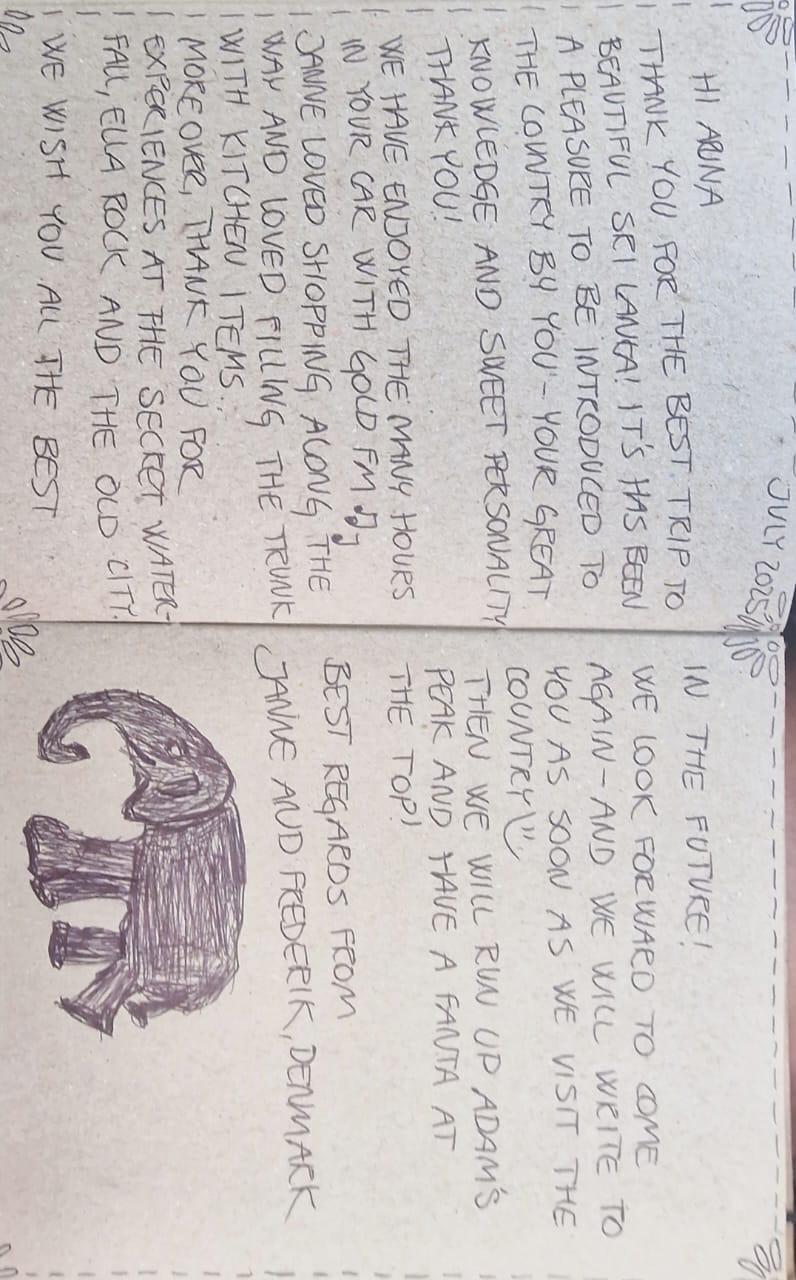 JULY 2025
HI ARUNA
THANK YOU FOR THE BEST TRIP TO
BEAUTIFUL SRI LANKA! IT'S HAS BEEN
A PLEASURE TO BE INTRODUCED TO
THE COUNTRY BY YOU - YOUR GREAT
KNOWLEDGE AND SWEET PERSONALITY
THANK YOU!
WE HAVE ENJOYED THE MANY HOURS
IN YOUR CAR WITH GOLD FM ♫♪
JANNE LOVED SHOPPING ALONG THE
WAY AND LOVED FILLING THE TRUNK
WITH KITCHEN ITEMS..
MOREOVER, THANK YOU FOR
EXPERIENCES AT THE SECRET WATER-
FALL, ELLA ROCK AND THE OLD CITY.
WE WISH YOU ALL THE BEST
IN THE FUTURE!
WE LOOK FORWARD TO COME
AGAIN - AND WE WILL WRITE TO
YOU AS SOON AS WE VISIT THE
COUNTRY :)
THEN WE WILL RUN UP ADAM'S
PEAK AND HAVE A FANTA AT
THE TOP!
BEST REGARDS FROM
JANNE AND FREDERIK, DENMARK